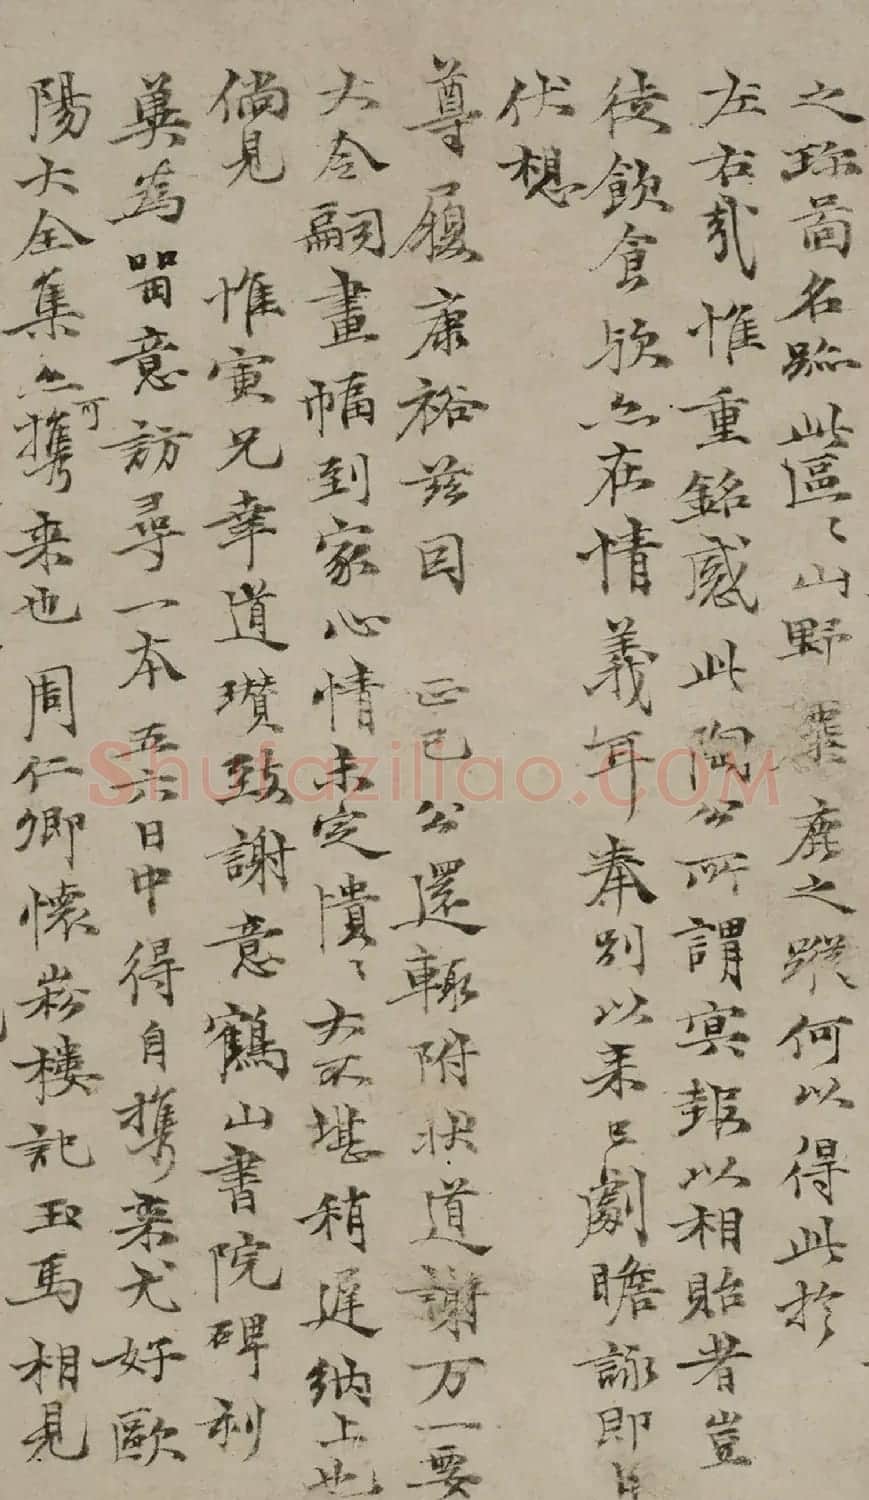 之珎啚名跡此區〻山野麋鹿之蹤何以得此於
左右哉惟重銘感此陶公所謂冥報以相貽者豈
徒飲食欤亦在情義耳奉別以来已劇瞻詠即日
伏想
尊履康裕茲因 正己公還輒附状道謝万一要
大令嗣畫幅到家心情未定憒〻大不堪稍遲納上也
倘見 惟寅兄幸道瓚致謝意鶴山書院碑刻
冀為留意訪尋一本五六日中得自攜来尤好歐
陽大全集亦可攜来也周仁卿懷崧樓記玉馬相見
Shufaziliao.COM